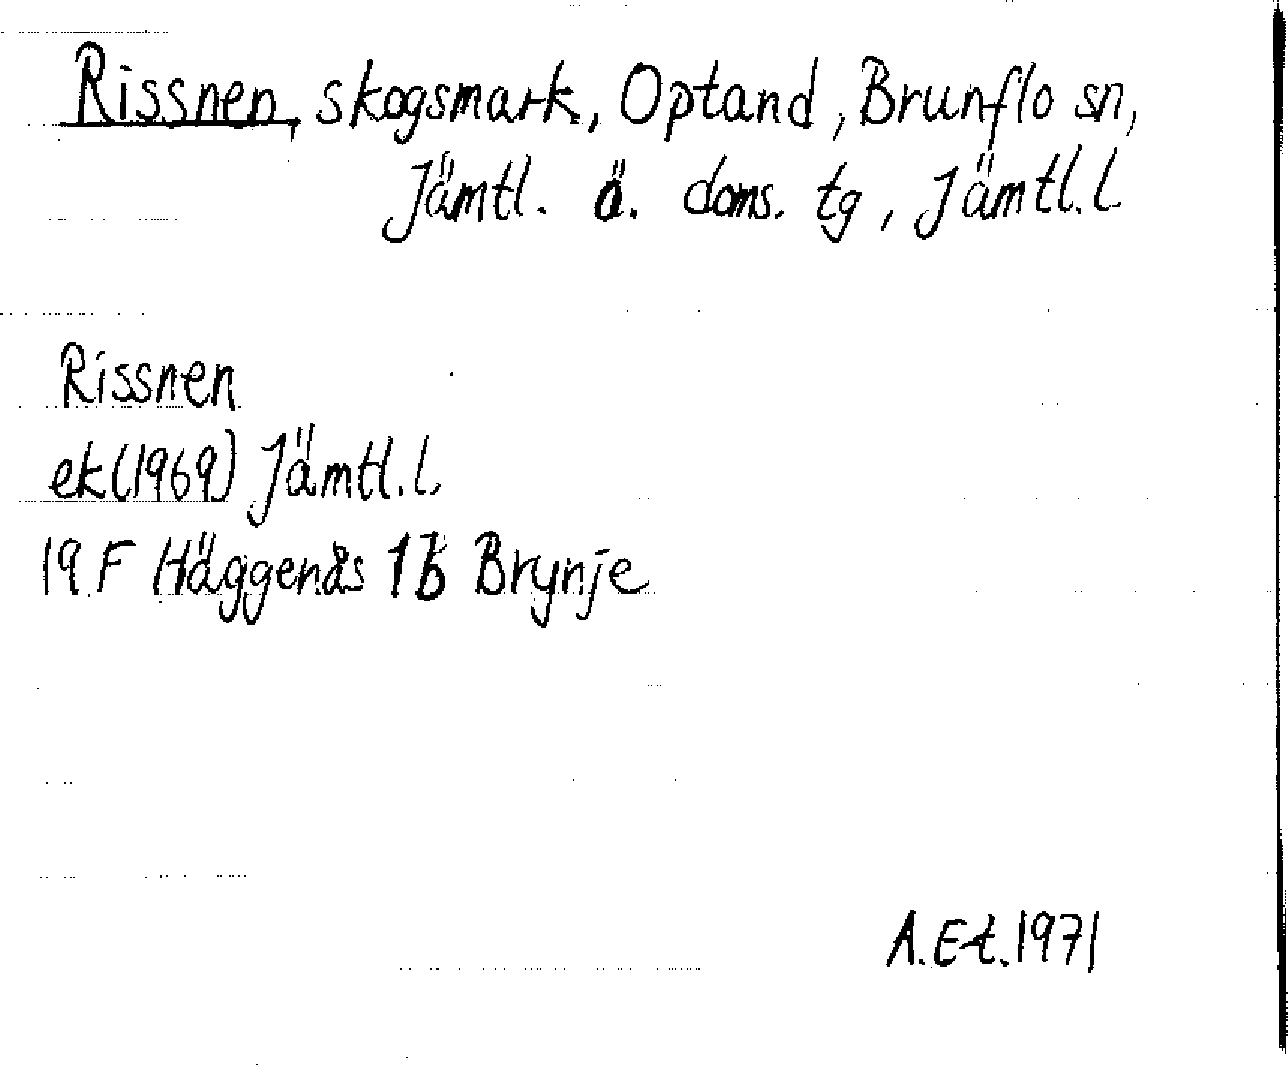 Rissnen, skogsmark, Optand, Brunflo sn,
Jämtl. ö. doms. tg, Jämtl.l.
Rissnen
ek(1969) Jämtl.l.
19 F Häggenås 1b Brynje
A.Et.1971